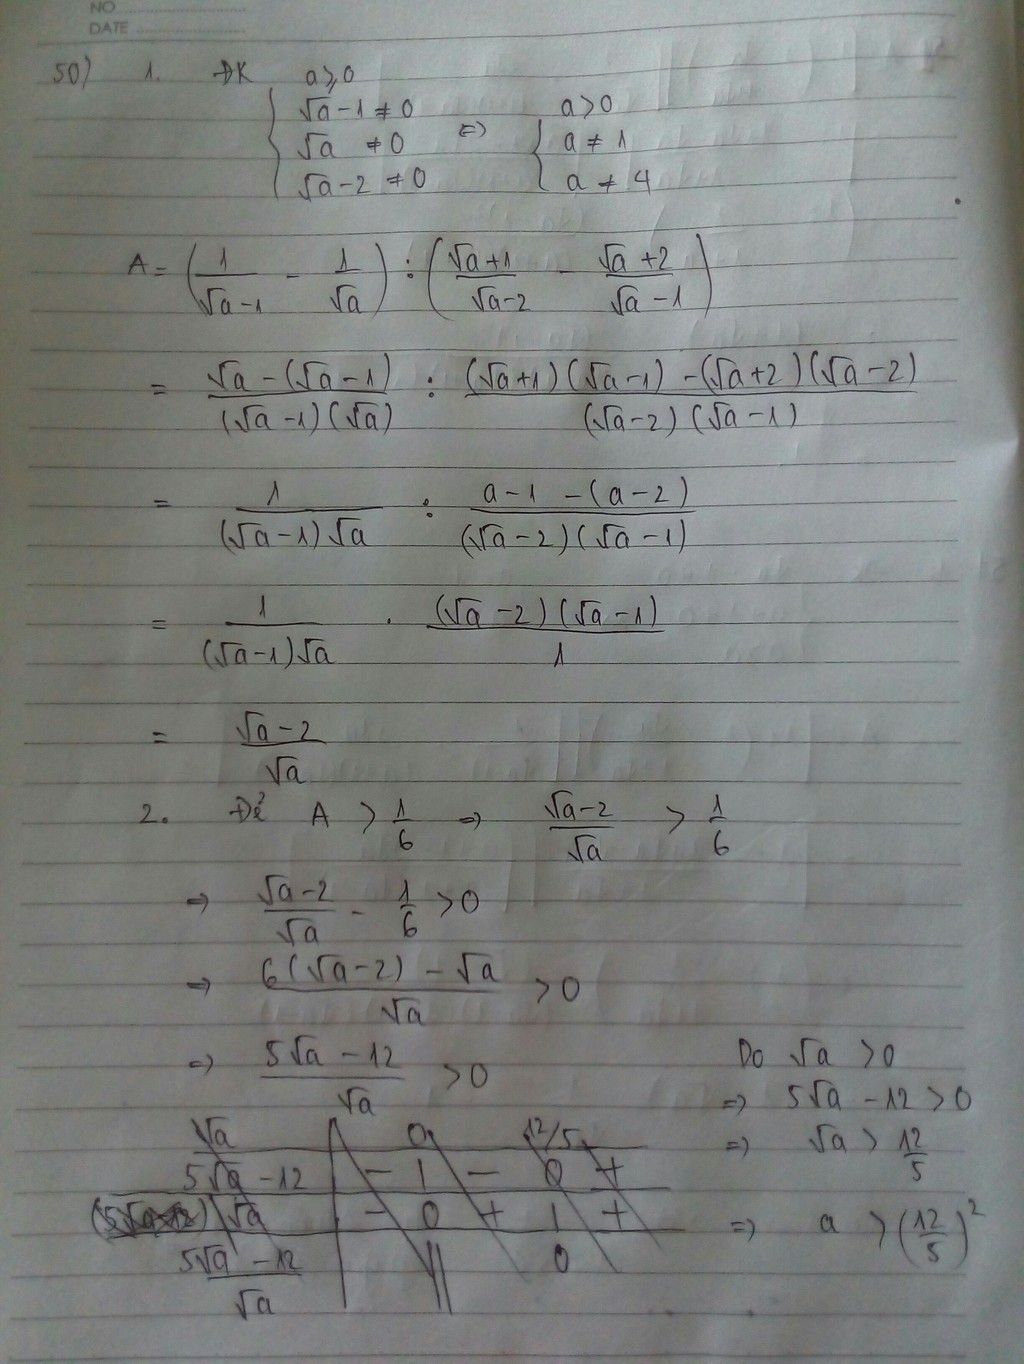 NO
DATE
50) 1. ĐK a ≥ 0
√a - 1 ≠ 0 a > 0
√a ≠ 0 => a ≠ 1
√a - 2 ≠ 0 a ≠ 4
A = (1/(√a - 1) - 1/√a) : ((√a + 1)/(√a - 2) - (√a + 2)/(√a - 1))
= (√a - (√a - 1))/((√a - 1)(√a)) : ((√a + 1)(√a - 1) - (√a + 2)(√a - 2))/((√a - 2)(√a - 1))
= 1/((√a - 1)√a) : (a - 1 - (a - 2))/((√a - 2)(√a - 1))
= 1/((√a - 1)√a) . ((√a - 2)(√a - 1))/1
= (√a - 2)/√a
2. Để A > 1/6 => (√a - 2)/√a > 1/6
=> (√a - 2)/√a - 1/6 > 0
=> (6(√a - 2) - √a)/√a > 0
=> (5√a - 12)/√a > 0
Do √a > 0
=> 5√a - 12 > 0
=> √a > 12/5
=> a > (12/5)²
√a 0 12/5
5√a - 12 - | - 0 +
(5√a - 12) √a - 0 + | +
(5√a - 12)/√a || 0